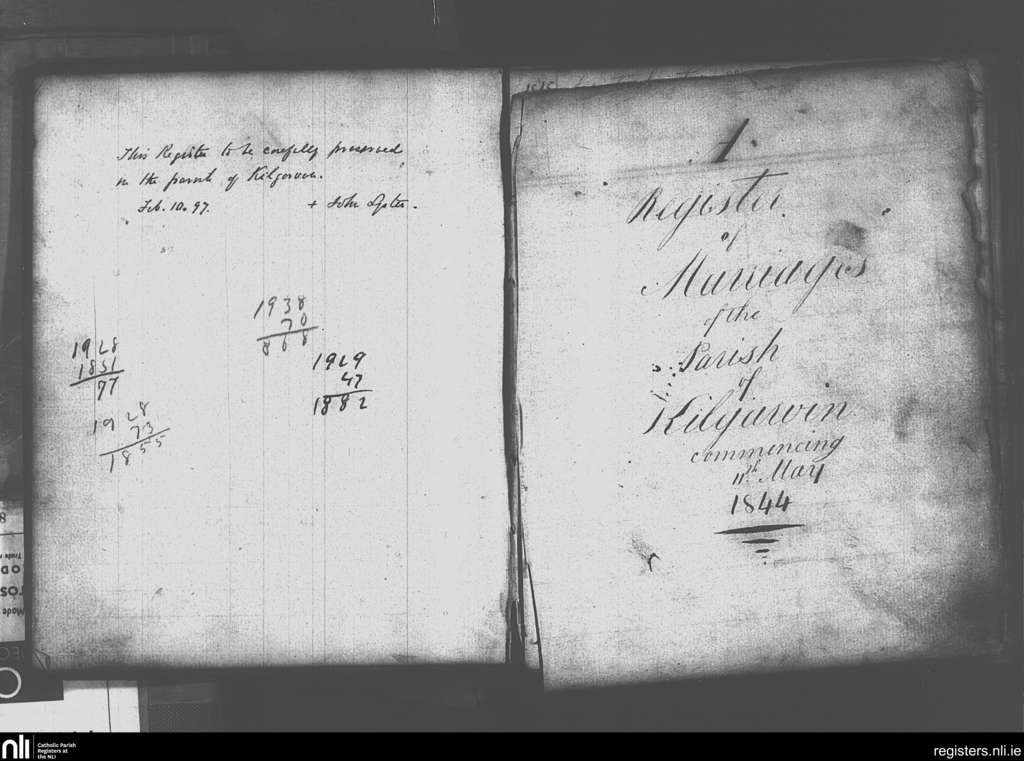 This Register to be carefully preserved
in the parish of Kilgarvan.
Feb. 10. 97. + John
1938
70
868
1928
1851
77
1929
47
1882
1928
73
1855
1.
Register
of
Marriages
of the
Parish
of
Kilgarvin
commencing
11th May
1844
nli
Catholic Parish
Registers at
the NLI
registers.nli.ie